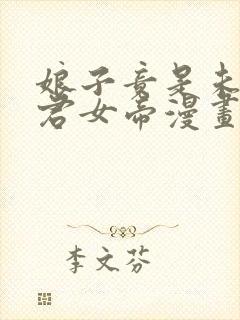 娘子竟是未
君女帝漫畫
李文芬